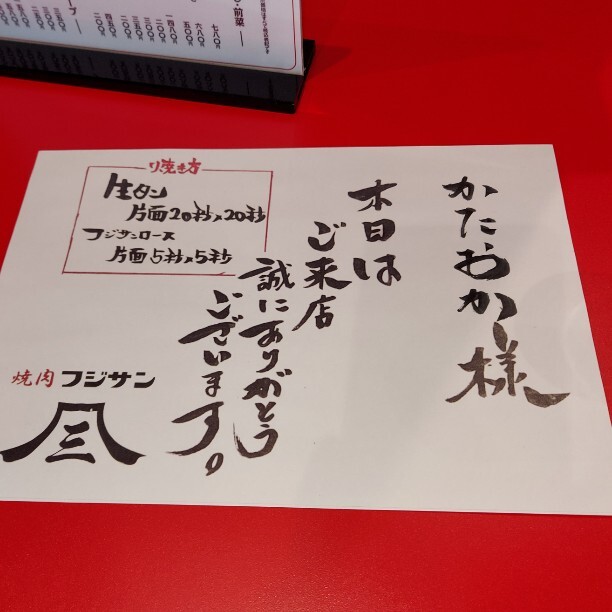 かたおか様
本日は
ご来店
誠にありがとう
ございます。
焼き方
生タン
片面20秒×20秒
フジサンロース
片面5秒×5秒
焼肉 フジサン
前菜
七八〇円
六八〇円